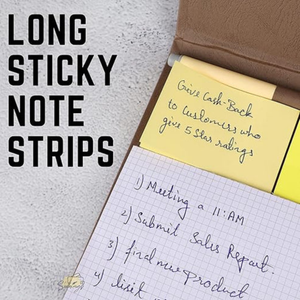 LONG
STICKY
NOTE
STRIPS
Give Cash-Back
to Customers who
give 5 Star ratings
1) Meeting a 11:AM
2) Submit Sales Report.
3) find new Product
4) Visit